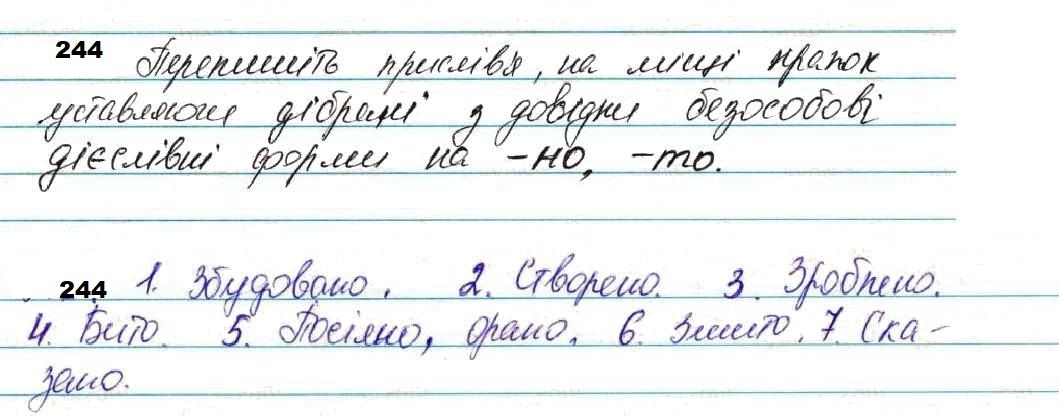 244 Перепишіть прислівя, на місці крапок
уставляючи дібрані з довідки безособові
дієслівні форми на -но, -то.
244 1. Збудовано. 2. Створено. 3. Зроблено.
4. Бито. 5. Посіяно, орано. 6. Знито. 7. Ска-
зано.